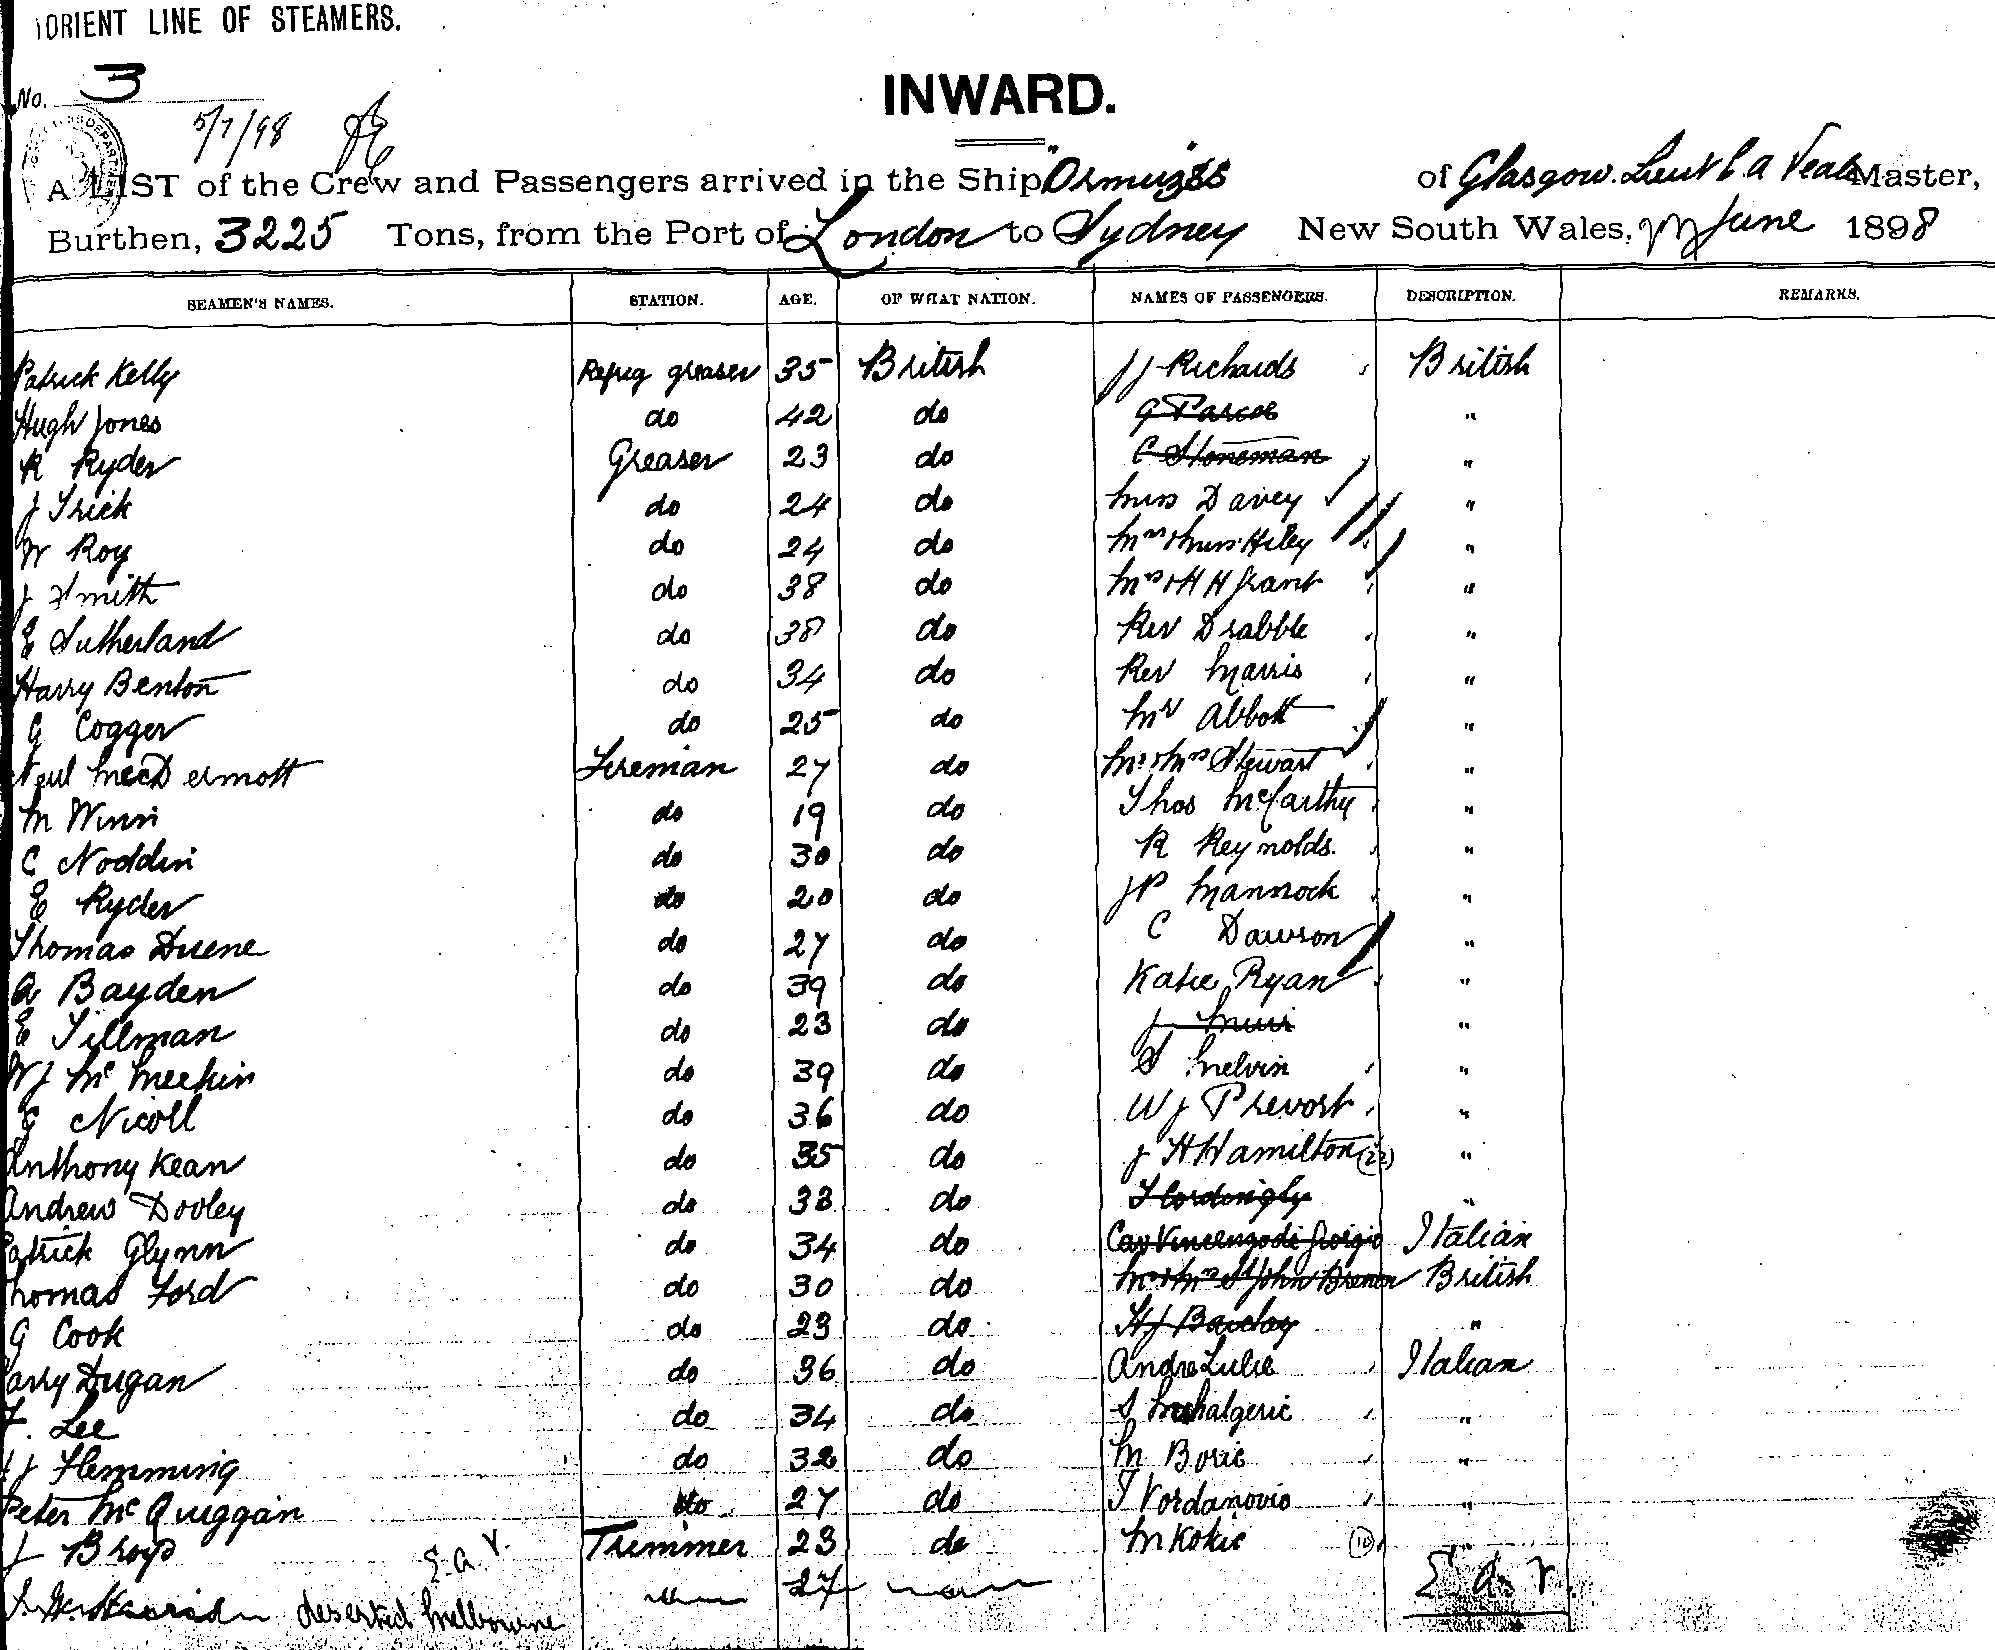 ORIENT LINE OF STEAMERS.
No. 3
INWARD.
5/7/98
A LIST of the Crew and Passengers arrived in the Ship "Ormuz" SS of Glasgow. Lieut E A Veale Master,
Burthen, 3225 Tons, from the Port of London to Sydney New South Wales, June 1898
SEAMEN'S NAMES. STATION. AGE. OF WHAT NATION. NAMES OF PASSENGERS. DESCRIPTION. REMARKS.
Patrick Kelly Refrig greaser 35 British J J Richards British
Hugh Jones do 42 do G Parcel "
R Ryder Greaser 23 do C Stoneman "
J Trick do 24 do Miss Davey "
W Roy do 24 do Mrs & Miss Hiley "
J Smith do 38 do Mrs H H Grant "
E Sutherland do 38 do Rev Drabble "
Harry Benton do 34 do Rev Marris "
G Cogger do 25 do Mr Abbott "
Neil MecDermott Fireman 27 do Mr & Mrs Stewart "
M Winn do 19 do Thos McCarthy "
C Noddin do 30 do R Reynolds. "
E Ryder do 20 do J P Mannock "
Thomas Duene do 27 do C Dawson "
A Bayden do 39 do Katie Ryan "
E Tillman do 23 do J Muir "
W J Mc Meekin do 39 do S Melvin "
G Nicoll do 36 do W J Prevost "
Anthony Kean do 35 do J H Hamilton (22) "
Andrew Dooley do 33 do T Cordingly "
Patrick Glynn do 34 do Cav Vincenzo di Giorgio Italian
Thomas Ford do 30 do Mr & Mrs St John Brenon British
G Cook do 23 do H J Barclay "
Harry Dugan do 36 do Andre Lulie Italian
F. Lee do 34 do S "
J Flemming do 32 do M Boric "
Peter Mc Quiggan do 27 do T Vordanovio "
J Broyd Trimmer 23 do M Kokic (10)
E. A. V.
deserted Melbourne 27
E. A. V.